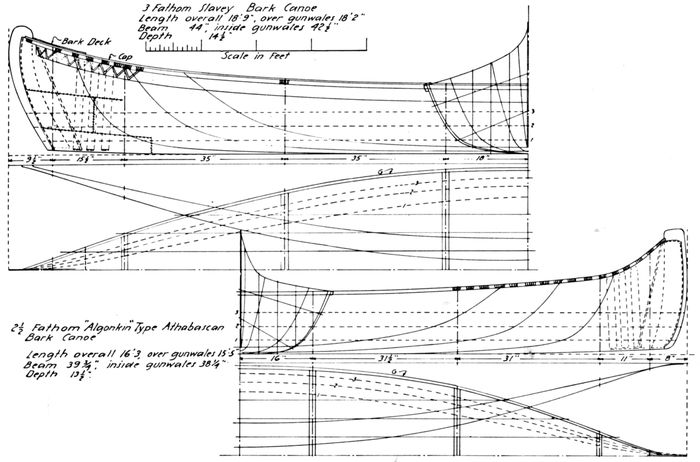 3 Fathom Slavey Bark Canoe
Length overall 18'9", over gunwales 18'2"
Beam 44", inside gunwales 42½"
Depth 14½"
Scale in Feet
Bark Deck
Cap
3
2
1
9½ 15½" 35" 35" 18"
G
3
2
1
2½ Fathom "Algonkin" Type Athabascan
Bark Canoe
Length overall 16'3, over gunwales 15'5"
Beam 39¾", inside gunwales 38¼"
Depth 13½"
3
2
1
16" 31½" 31" 11" 8"
G